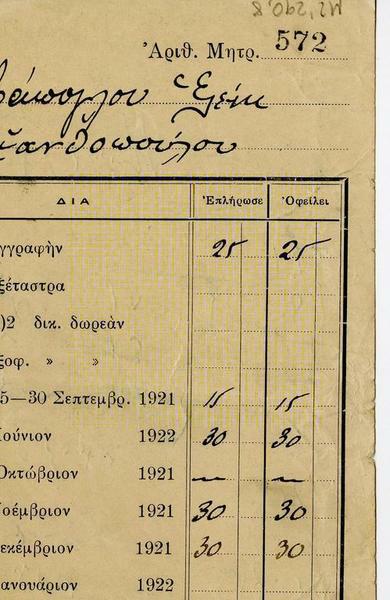 M2,290,8
Ἀριθ. Μητρ. 572
ΔΙΑ Ἐπλήρωσε Ὀφείλει
γγραφὴν 25 25
ξέταστρα
)2 δικ. δωρεὰν
ξοφ. » »
5—30 Σεπτεμβρ. 1921 15 15
Ἰούνιον 1922 30 30
Ὀκτώβριον 1921 — —
Νοέμβριον 1921 30 30
εκέμβριον 1921 30 30
ανουάριον 1922